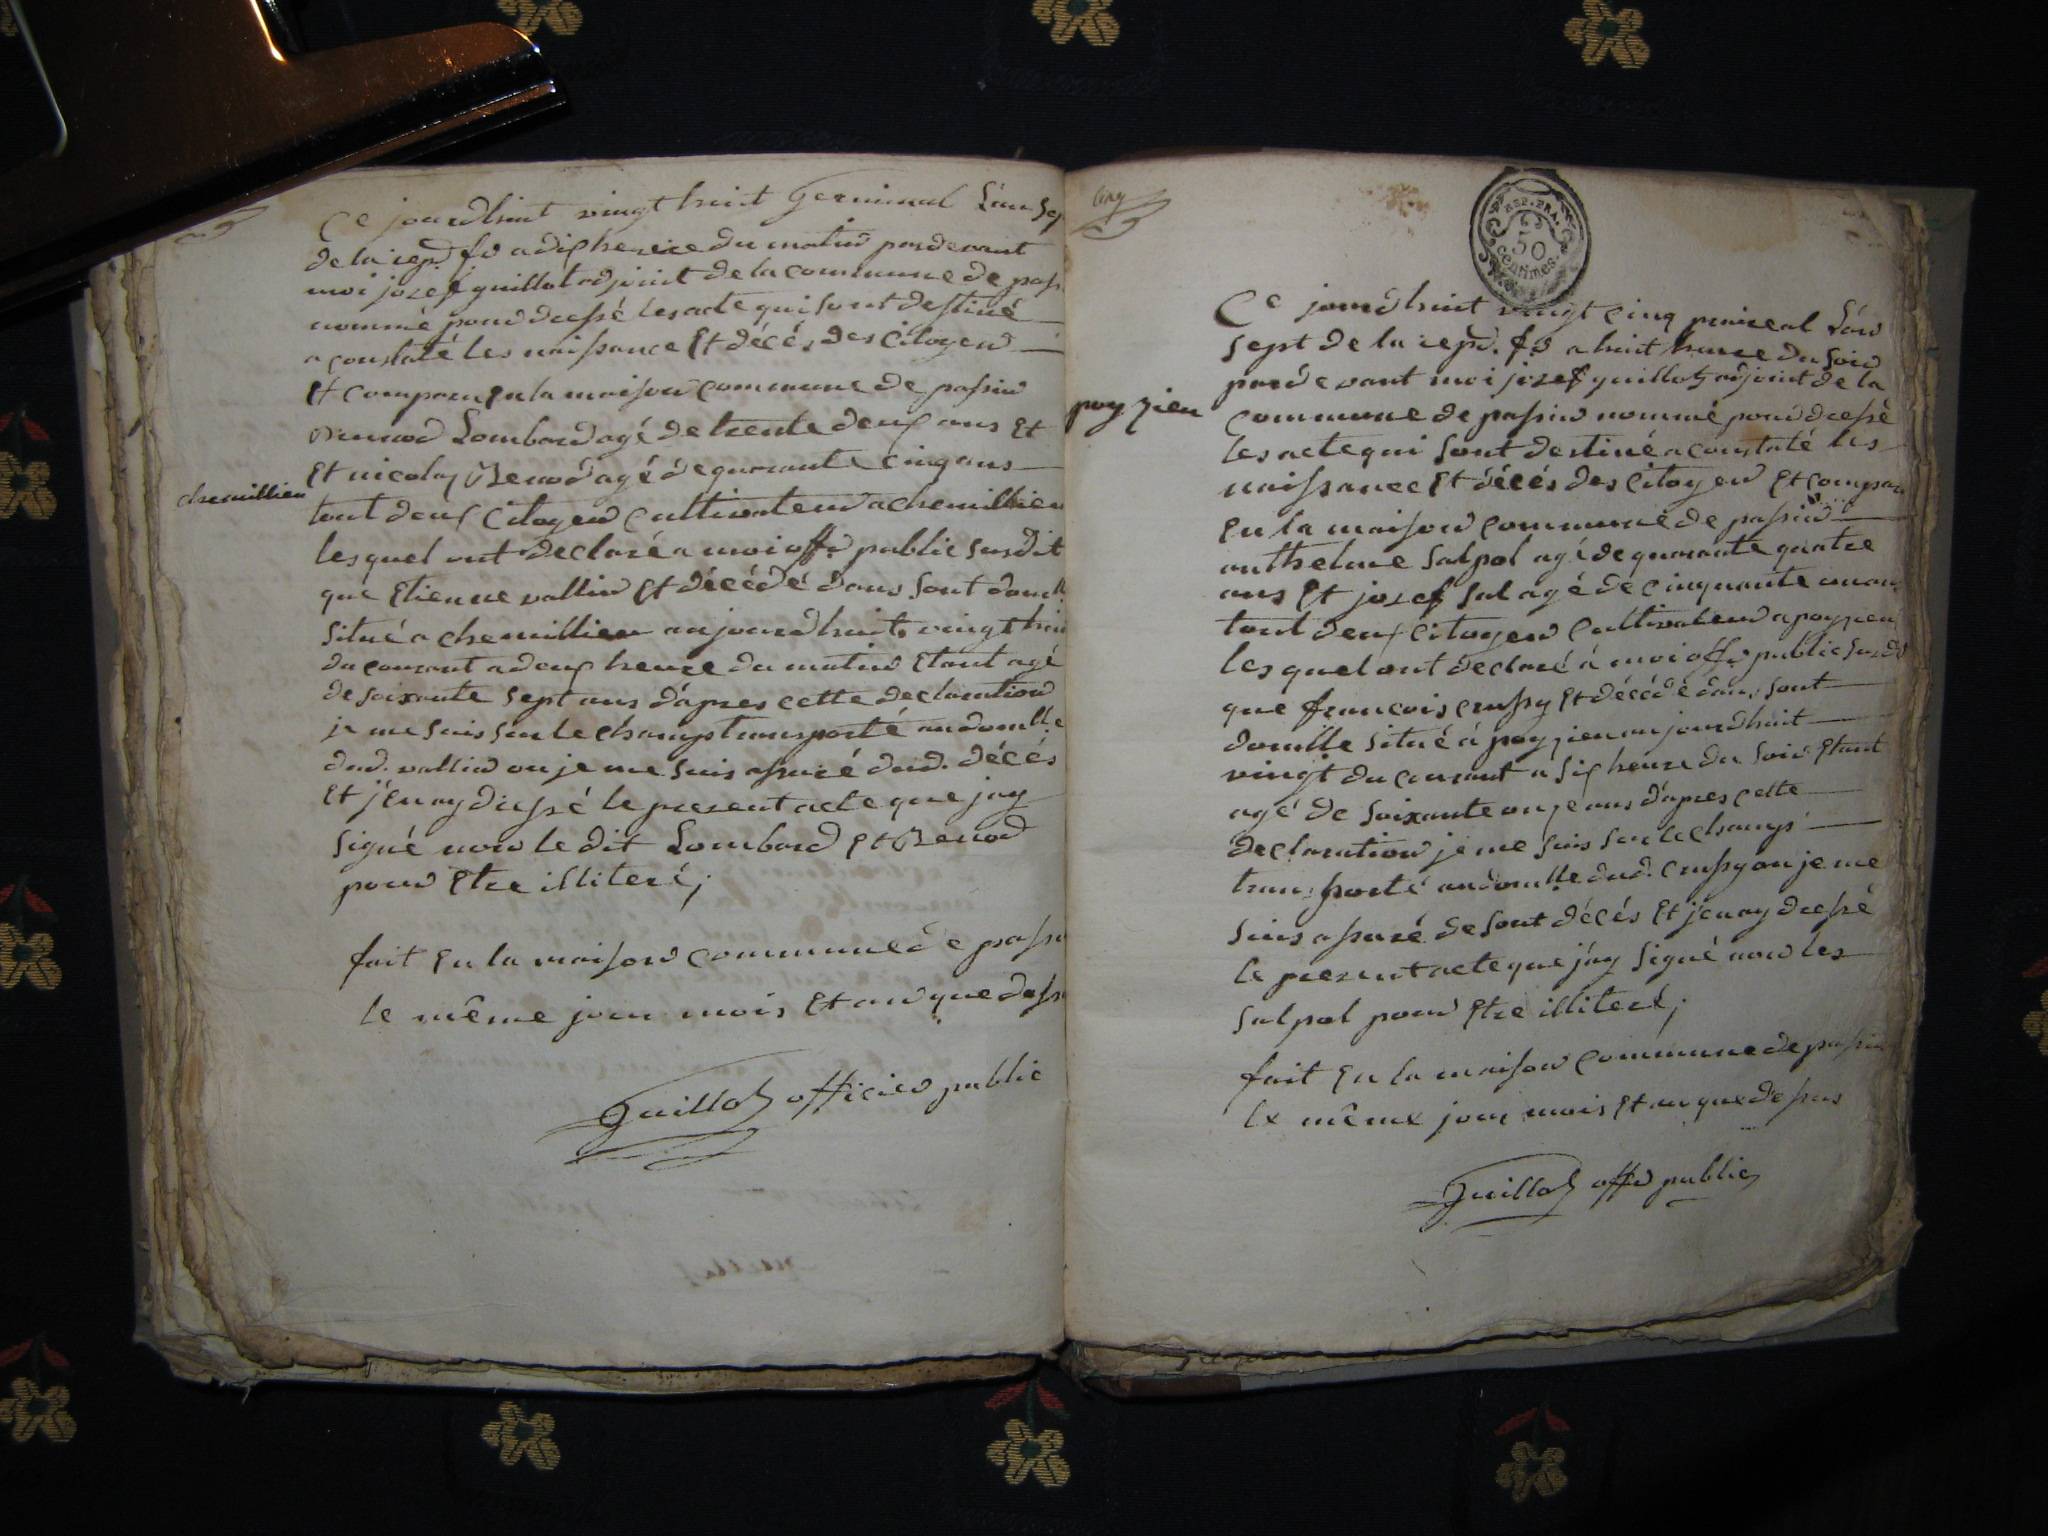 Ce jourdhuit vingt huit Germinal L'an Sep
de la repd. fs a dix heure du matin pardevant
moi jozef guillot adjoint de la commune de pass
nommé pour dressé les acte qui sont destiné
a constaté les naissance Et décés des Citoyen
Et comparu En la maison commune de passin
Lombard agé de trente deux ans Et
Et nicolas Benod agé de quarante cinq ans
chemillien
tout deux Citoyen Cultivateur a chemillien
lesquel ont declaré a moi offr public susdit
que Etienne vallin Et décédé dans sont domlle
situé a chemillien aujourdhuit vingt huit
du courant a deux heure du matin Etant agé
de soixante sept ans d'apres cette declaration
je me suis sur le champs transporté au domlle
dud. vallin ou je me suis assuré dud. décés
Et j'en ay dressé le present acte que j'ay
signé non le dit Lombard Et Benod
pour Etre illiteré;
fait En la maison commune de passi
le même jour mois Et an que dessu
Guillot officier public
Cinq
REP. FRA.
50
centimes.
Ce jourdhuit vingt Cinq praireal L'an
sept de la repd. fs a huit heure du soir
pardevant moi jozef guillot adjoint de la
poyzieu
commune de passin nommé pour dressé
les acte qui sont destiné a constaté les
naissance Et décés des Citoyen Et compar
En la maison commune de passin
anthelme Salpol agé de quarante quatre
ans Et jozef Sal agé de cinquante un an
tout deux Citoyen Cultivateur a poyzieu
lesquel ont declaré á moi offr public susd
que francois crussy Et décédé dans sont
domille situé á poyzieu aujourdhuit
vingt du courant a six heure du soir Etant
agé de soixante onze ans d'apres cette
declaration je me suis sur le champs
transporté au domille dud. crussy ou je me
suis assuré de sont décés Et j'en ay dressé
le present acte que j'ay signé non les
salpol pour Etre illiteré;
fait En la maison commune de passin
le même jour mois Et an que dessus
Guillot offr public